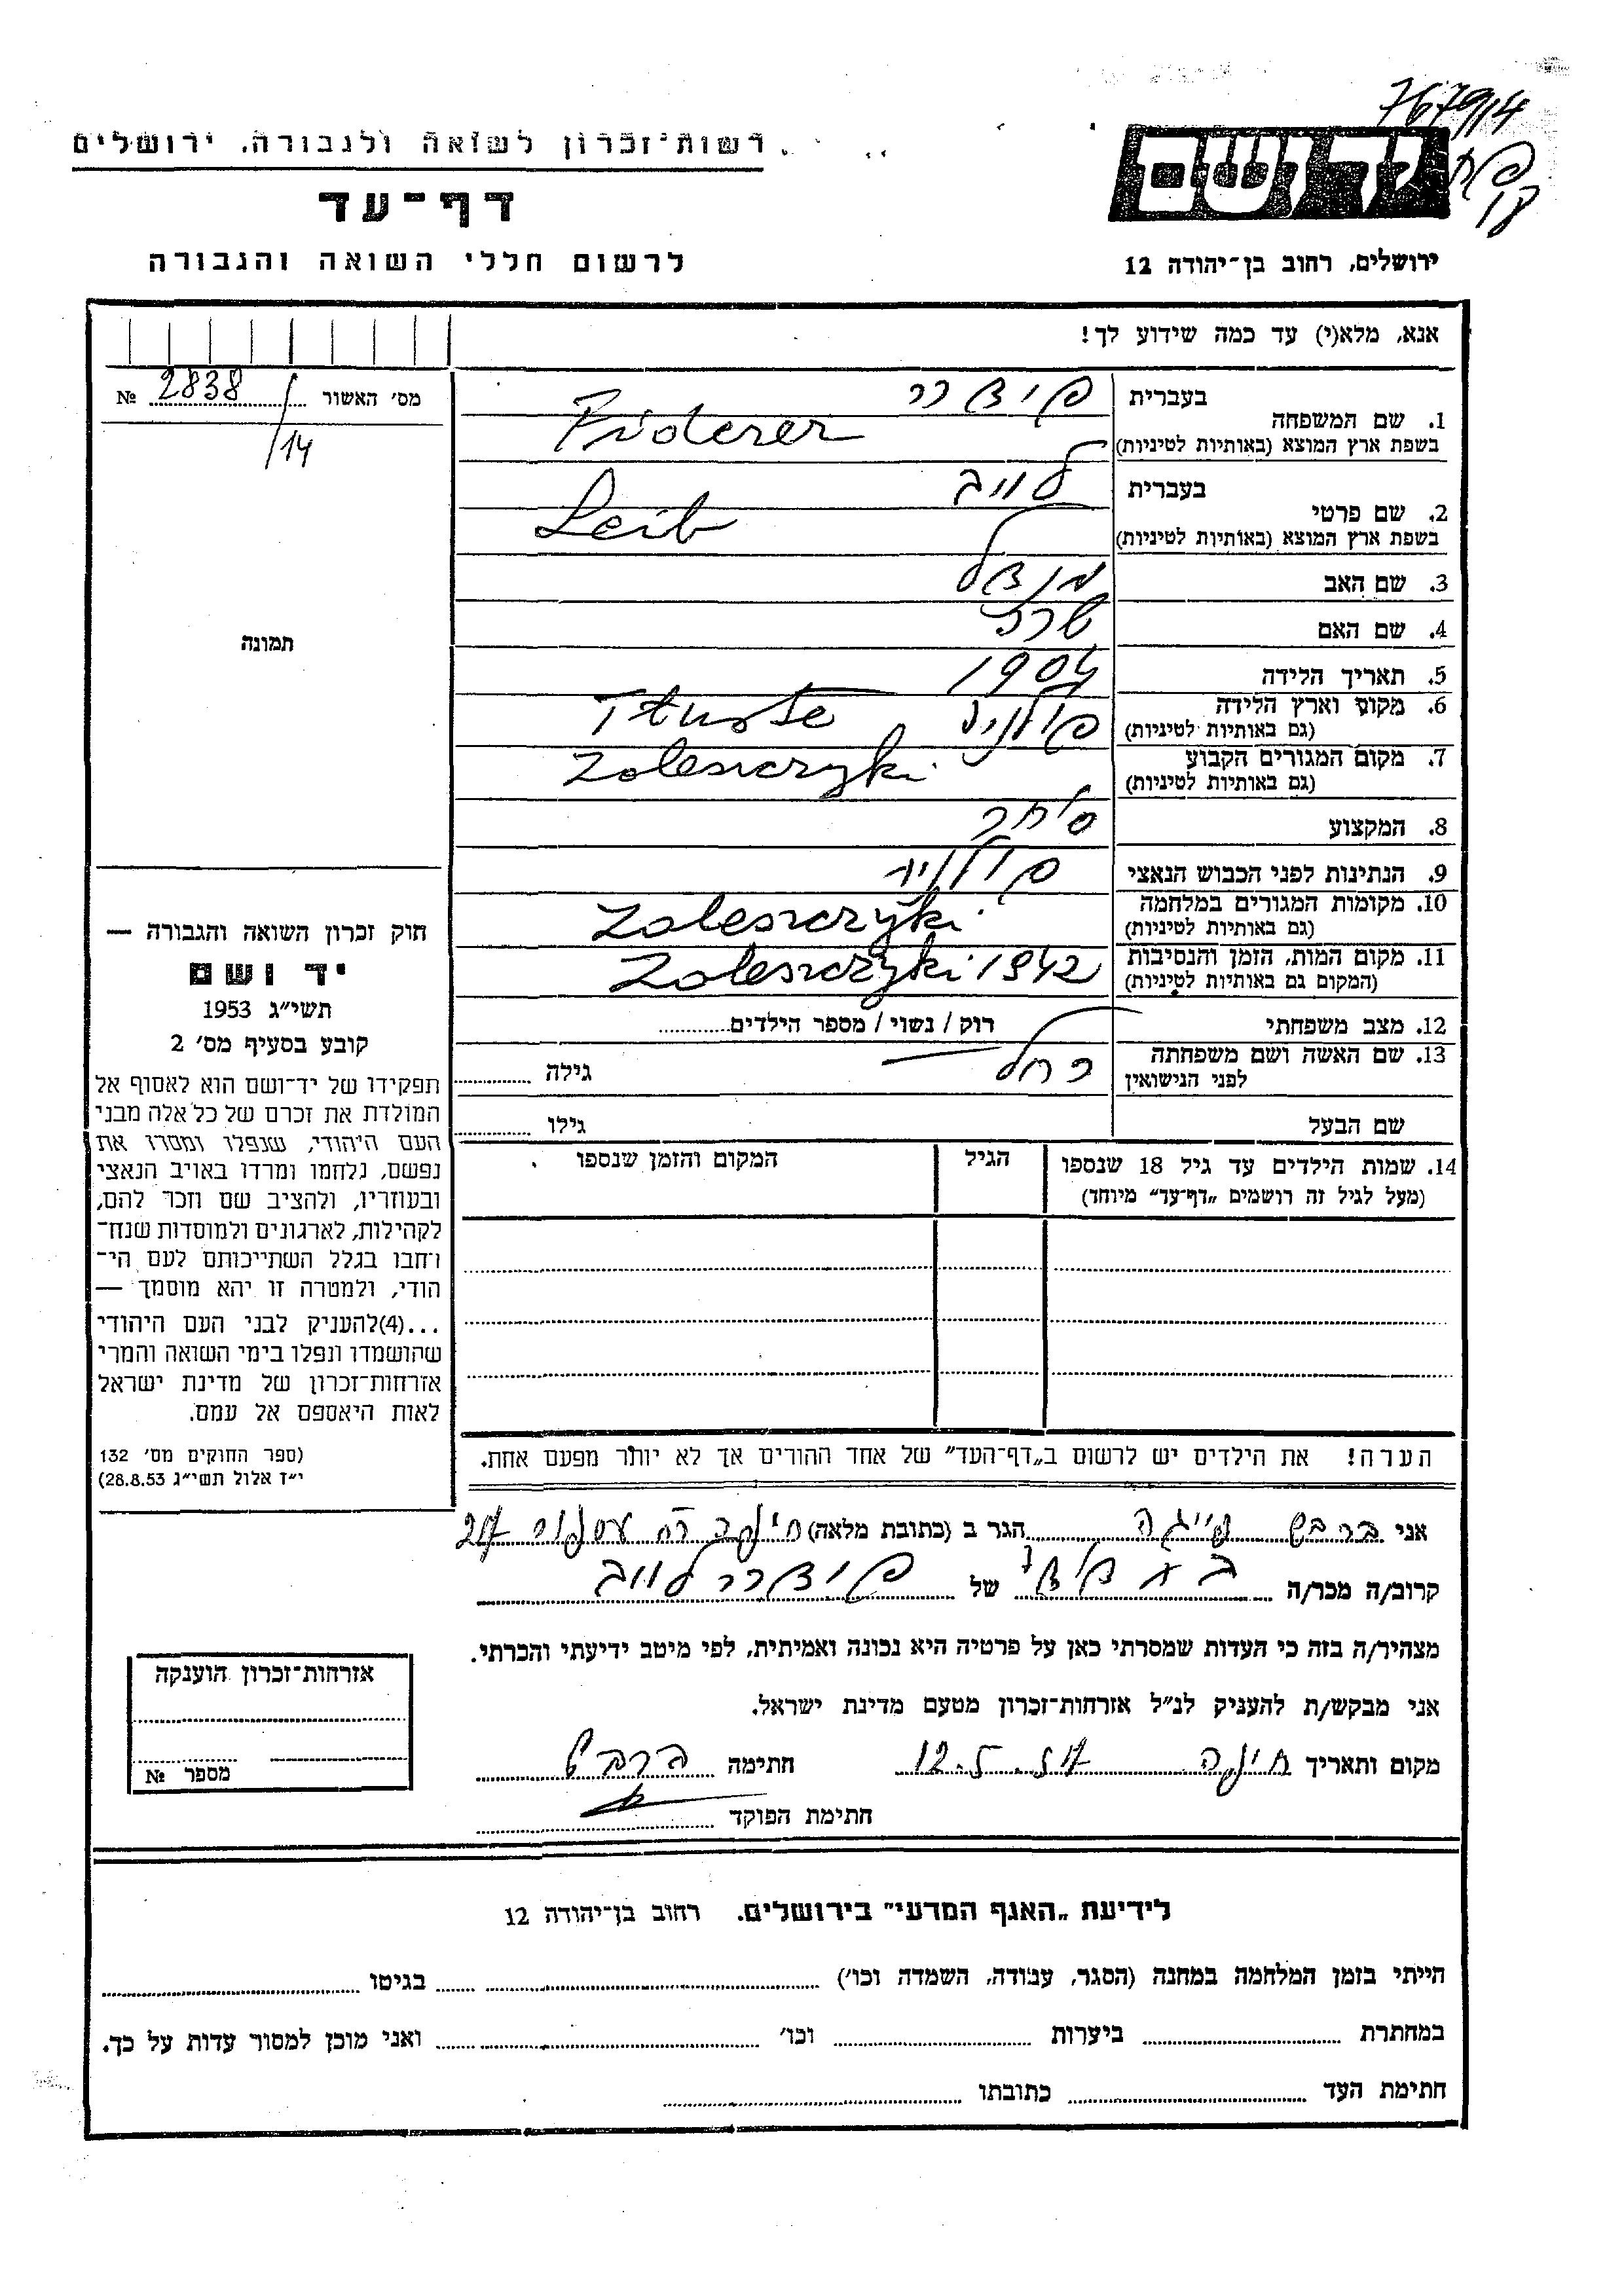 7679/14
רשות־זכרון לשואה ולגבורה, ירושלים
יד ושם
דף־עד
לרשום חללי השואה והגבורה
ירושלים, רחוב בן־יהודה 12
אנא, מלא(י) עד כמה שידוע לך!
מס׳ האשור № 2838/14
1. שם המשפחה
בעברית פידרר
בשפת ארץ המוצא (באותיות לטיניות) Fiderer
2. שם פרטי
בעברית לייב
בשפת ארץ המוצא (באותיות לטיניות) Leib
3. שם האב מנדל
4. שם האם שרה
5. תאריך הלידה 1904
6. מקום וארץ הלידה פולניה Tłuste
(גם באותיות לטיניות)
7. מקום המגורים הקבוע Zoleszczyki
(גם באותיות לטיניות)
8. המקצוע סוחר
9. הנתינות לפני הכבוש הנאצי פולניה
10. מקומות המגורים במלחמה Zoleszczyki
(גם באותיות לטיניות)
11. מקום המות, הזמן והנסיבות Zoleszczyki 1942
(המקום גם באותיות לטיניות)
12. מצב משפחתי רוק / נשוי / מספר הילדים
13. שם האשה ושם משפחתה רחל גילה
לפני הנישואין
שם הבעל גילו
14. שמות הילדים עד גיל 18 שנספו הגיל המקום והזמן שנספו
(מעל לגיל זה רושמים „דף־עד״ מיוחד)
הערה! את הילדים יש לרשום ב„דף־העד״ של אחד ההורים אך לא יותר מפעם אחת.
תמונה
חוק זכרון השואה והגבורה —
יד ושם
תשי״ג 1953
קובע בסעיף מס׳ 2
תפקידו של יד־ושם הוא לאסוף אל
המולדת את זכרם של כל אלה מבני
העם היהודי, שנפלו ומסרו את
נפשם, נלחמו ומרדו באויב הנאצי
ובעוזריו, ולהציב שם וזכר להם,
לקהילות, לארגונים ולמוסדות שנח־
רבו בגלל השתייכותם לעם הי־
הודי, ולמטרה זו יהא מוסמך —
...(4)להעניק לבני העם היהודי
שהושמדו ונפלו בימי השואה והמרי
אזרחות־זכרון של מדינת ישראל
לאות היאספם אל עמם.
(ספר החוקים מס׳ 132
י״ז אלול תשי״ג 28.8.53)
אני ברבש הגר ב (כתובת מלאה) חיפה רח
קרוב/ה מכר/ה של פידרר לייב
מצהיר/ה בזה כי העדות שמסרתי כאן על פרטיה היא נכונה ואמיתית, לפי מיטב ידיעתי והכרתי.
אני מבקש/ת להעניק לנ״ל אזרחות־זכרון מטעם מדינת ישראל.
מקום ותאריך חיפה 12.5. חתימה ברבש
חתימת הפוקד
אזרחות־זכרון הוענקה
מספר №
לידיעת „האגף המדעי״ בירושלים. רחוב בן־יהודה 12
הייתי בזמן המלחמה במחנה (הסגר, עבודה, השמדה וכו׳) בגיטו
במחתרת ביערות וכו׳ ואני מוכן למסור עדות על כך.
חתימת העד כתובתו